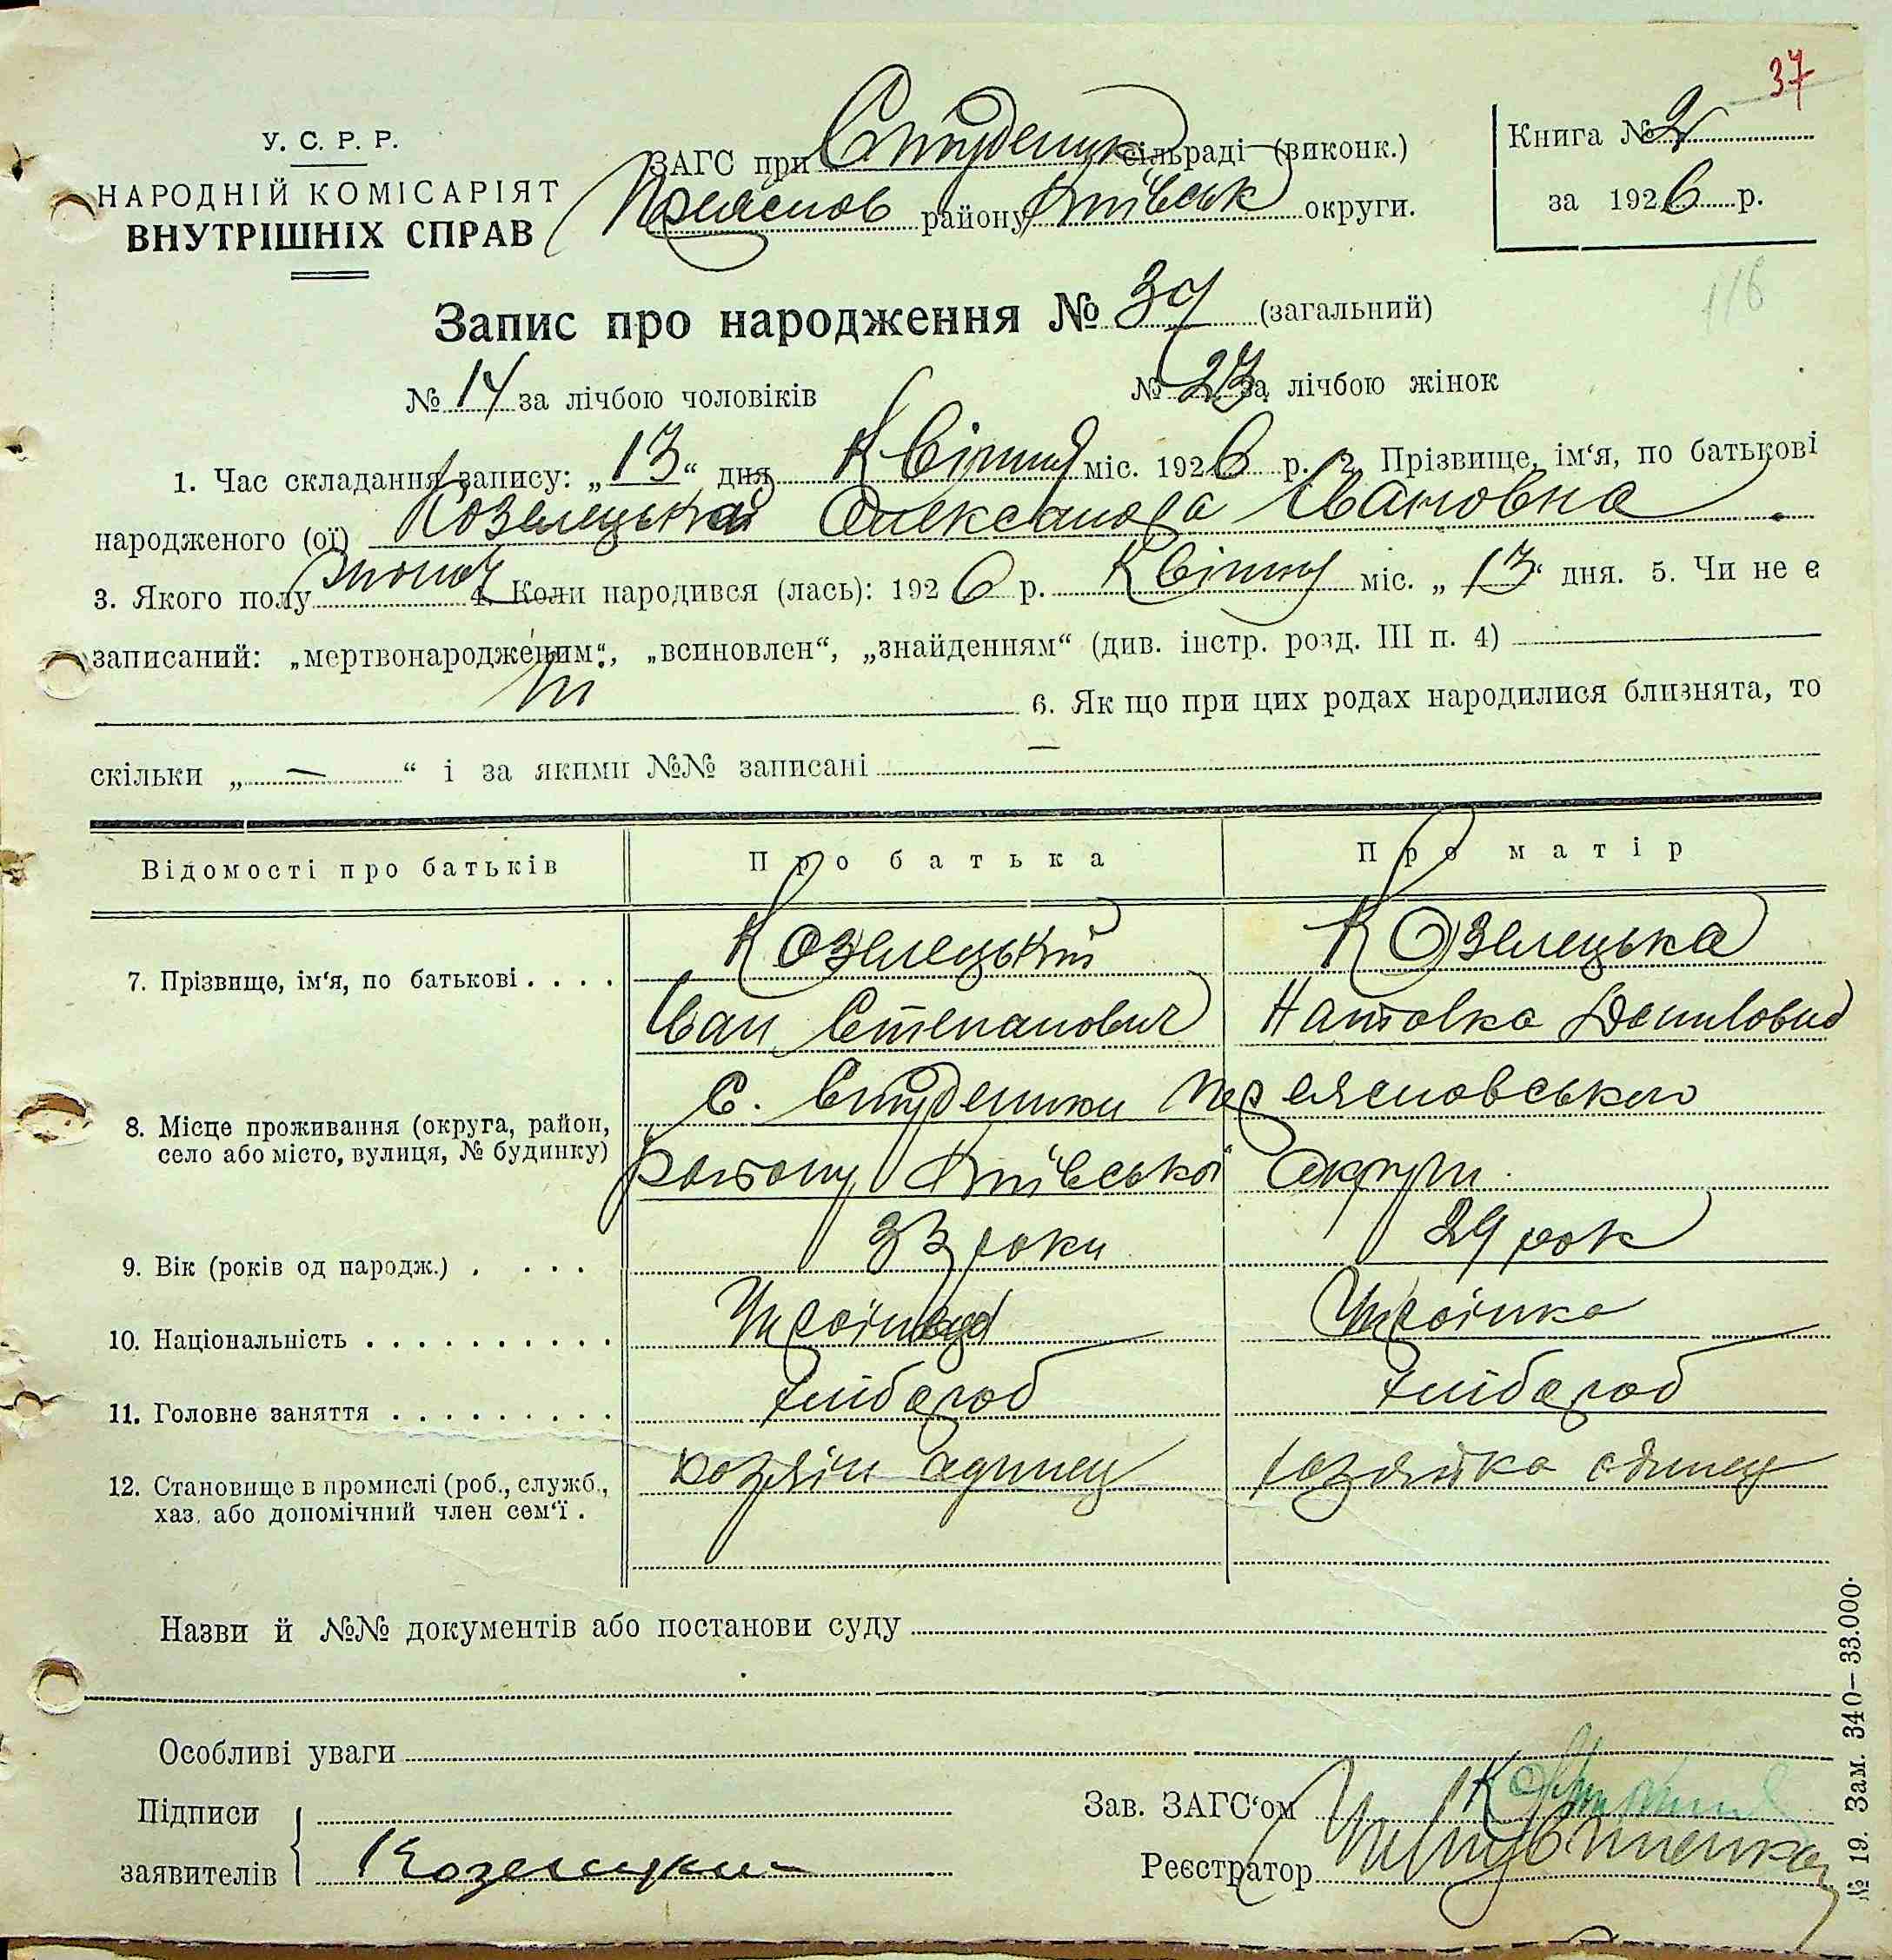 37
У. С. Р. Р.
НАРОДНІЙ КОМІСАРІЯТ
ВНУТРІШНІХ СПРАВ
ЗАГС при Студениц сільраді (виконк.)
району Київськ округи.
Книга № 2
за 1926 р.
116
Запис про народження № 37 (загальний)
№ 14 за лічбою чоловіків
№ 23 за лічбою жінок
1. Час складання запису: „13“ дня Квітня міс. 1926 р. 2. Прізвище, ім‘я, по батькові
народженого (ої) Козелецька Олександра Івановна
3. Якого полу жіноч 4. Коли народився (лась): 1926 р. Квітня міс. „13“ дня. 5. Чи не є
записаний: „мертвонародженим“, „всиновлен“, „знайденням“ (див. інстр. розд. III п. 4)
Ні
6. Як що при цих родах народилися близнята, то
скільки „—“ і за якими №№ записані —
Відомості про батьків
Про батька
Про матір
7. Прізвище, ім‘я, по батькові . . . .
Козелецький
Козелецька
Іван Степанович
Наталка Даниловна
8. Місце проживання (округа, район,
село або місто, вулиця, № будинку)
С. Студеники Переясловського
району Київської Округи
9. Вік (років од народж.) . . . .
33 роки
29 рок
10. Національність . . . . . . . . . .
Українець
Українка
11. Головне заняття . . . . . . . . .
хлібороб
хлібороб
12. Становище в промислі (роб., служб.,
хаз. або допомічний член сем‘ї .
хозяїн
хозяйка
Назви й №№ документів або постанови суду
Особливі уваги
Підписи
заявителів
Козелецки
Зав. ЗАГС‘ом
Реєстратор
№ 19. Зам. 340—33.000.